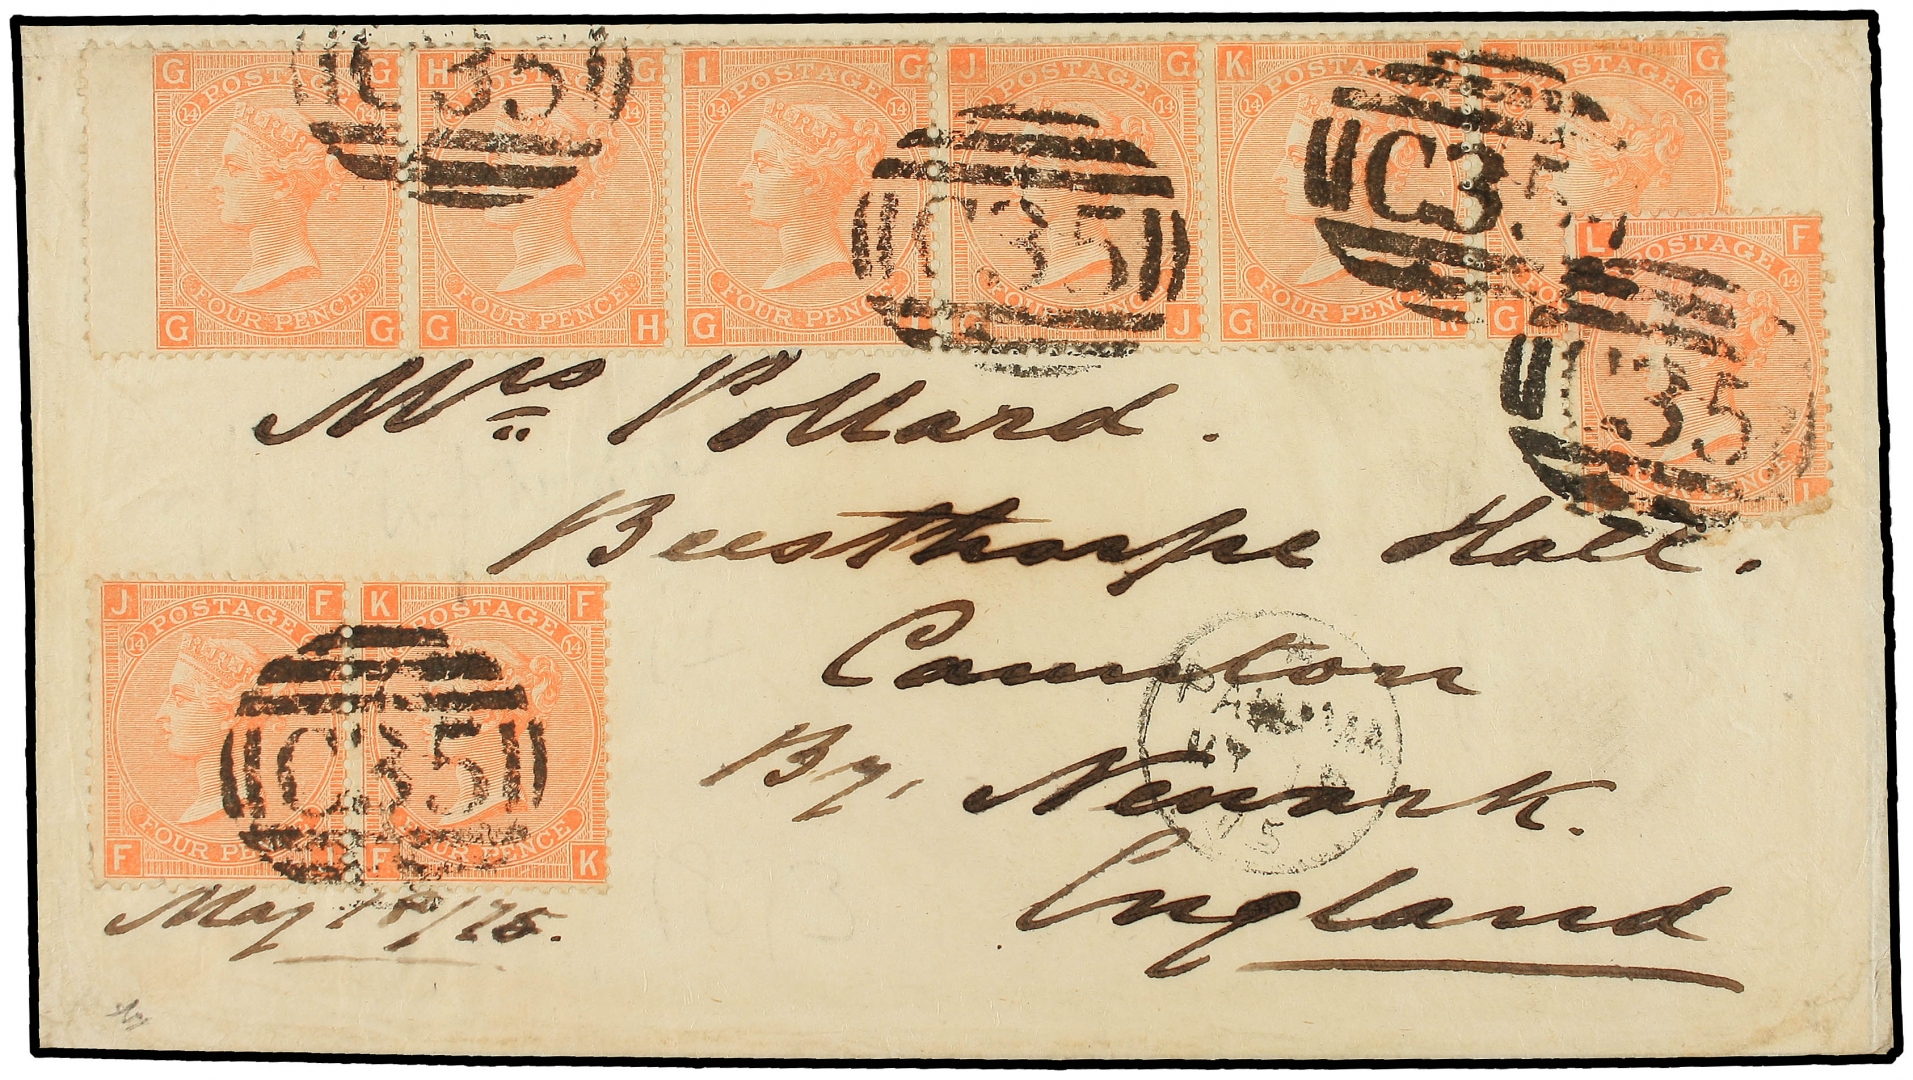 G G H G I G J G K G G
14 POSTAGE 14 POSTAGE 14 POSTAGE 14 POSTAGE 14 POSTAGE 14
C35 C35 C35
FOUR PENCE FOUR PENCE FOUR PENCE FOUR PENCE FOUR PENCE
G G G H G I G J G K G
L F
POSTAGE 14
C35
FOUR PENCE
L
Mrs Pollard.
Beesthorpe Hall.
Caunton
By. Newark.
England
PANAMA
MY
5
J F K F
14 POSTAGE POSTAGE 14
C35
FOUR PENCE FOUR PENCE
F J F K
May 18/75.